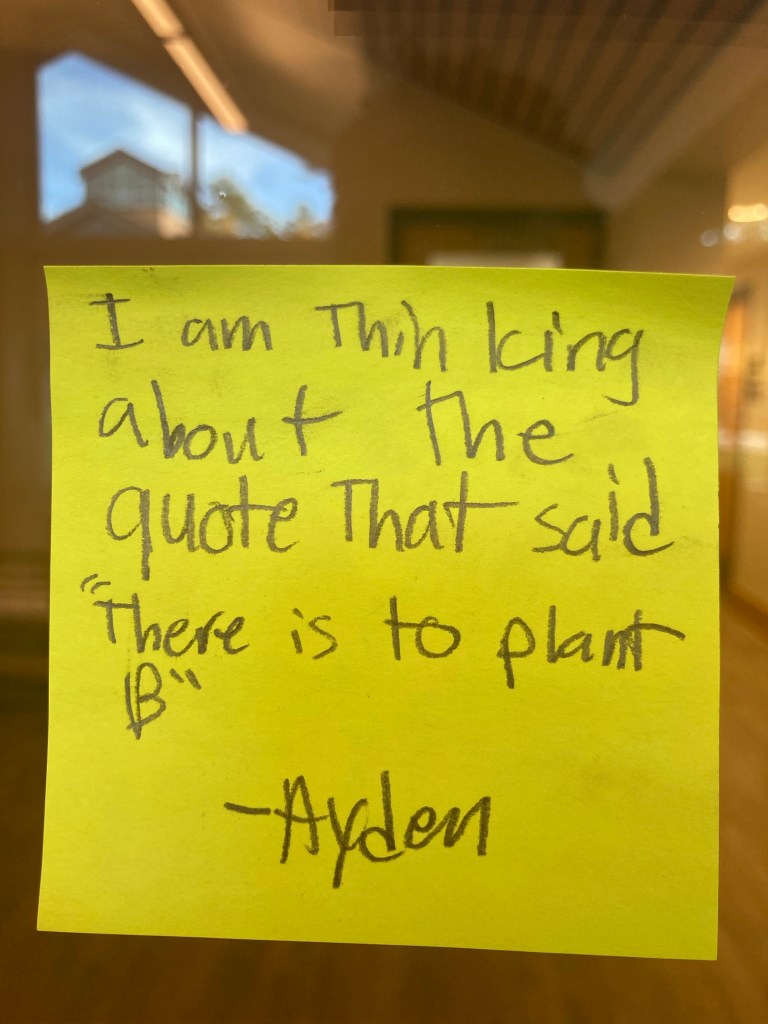 I am Thinking
about the
quote That said
"There is to plant
B"
-Ayden